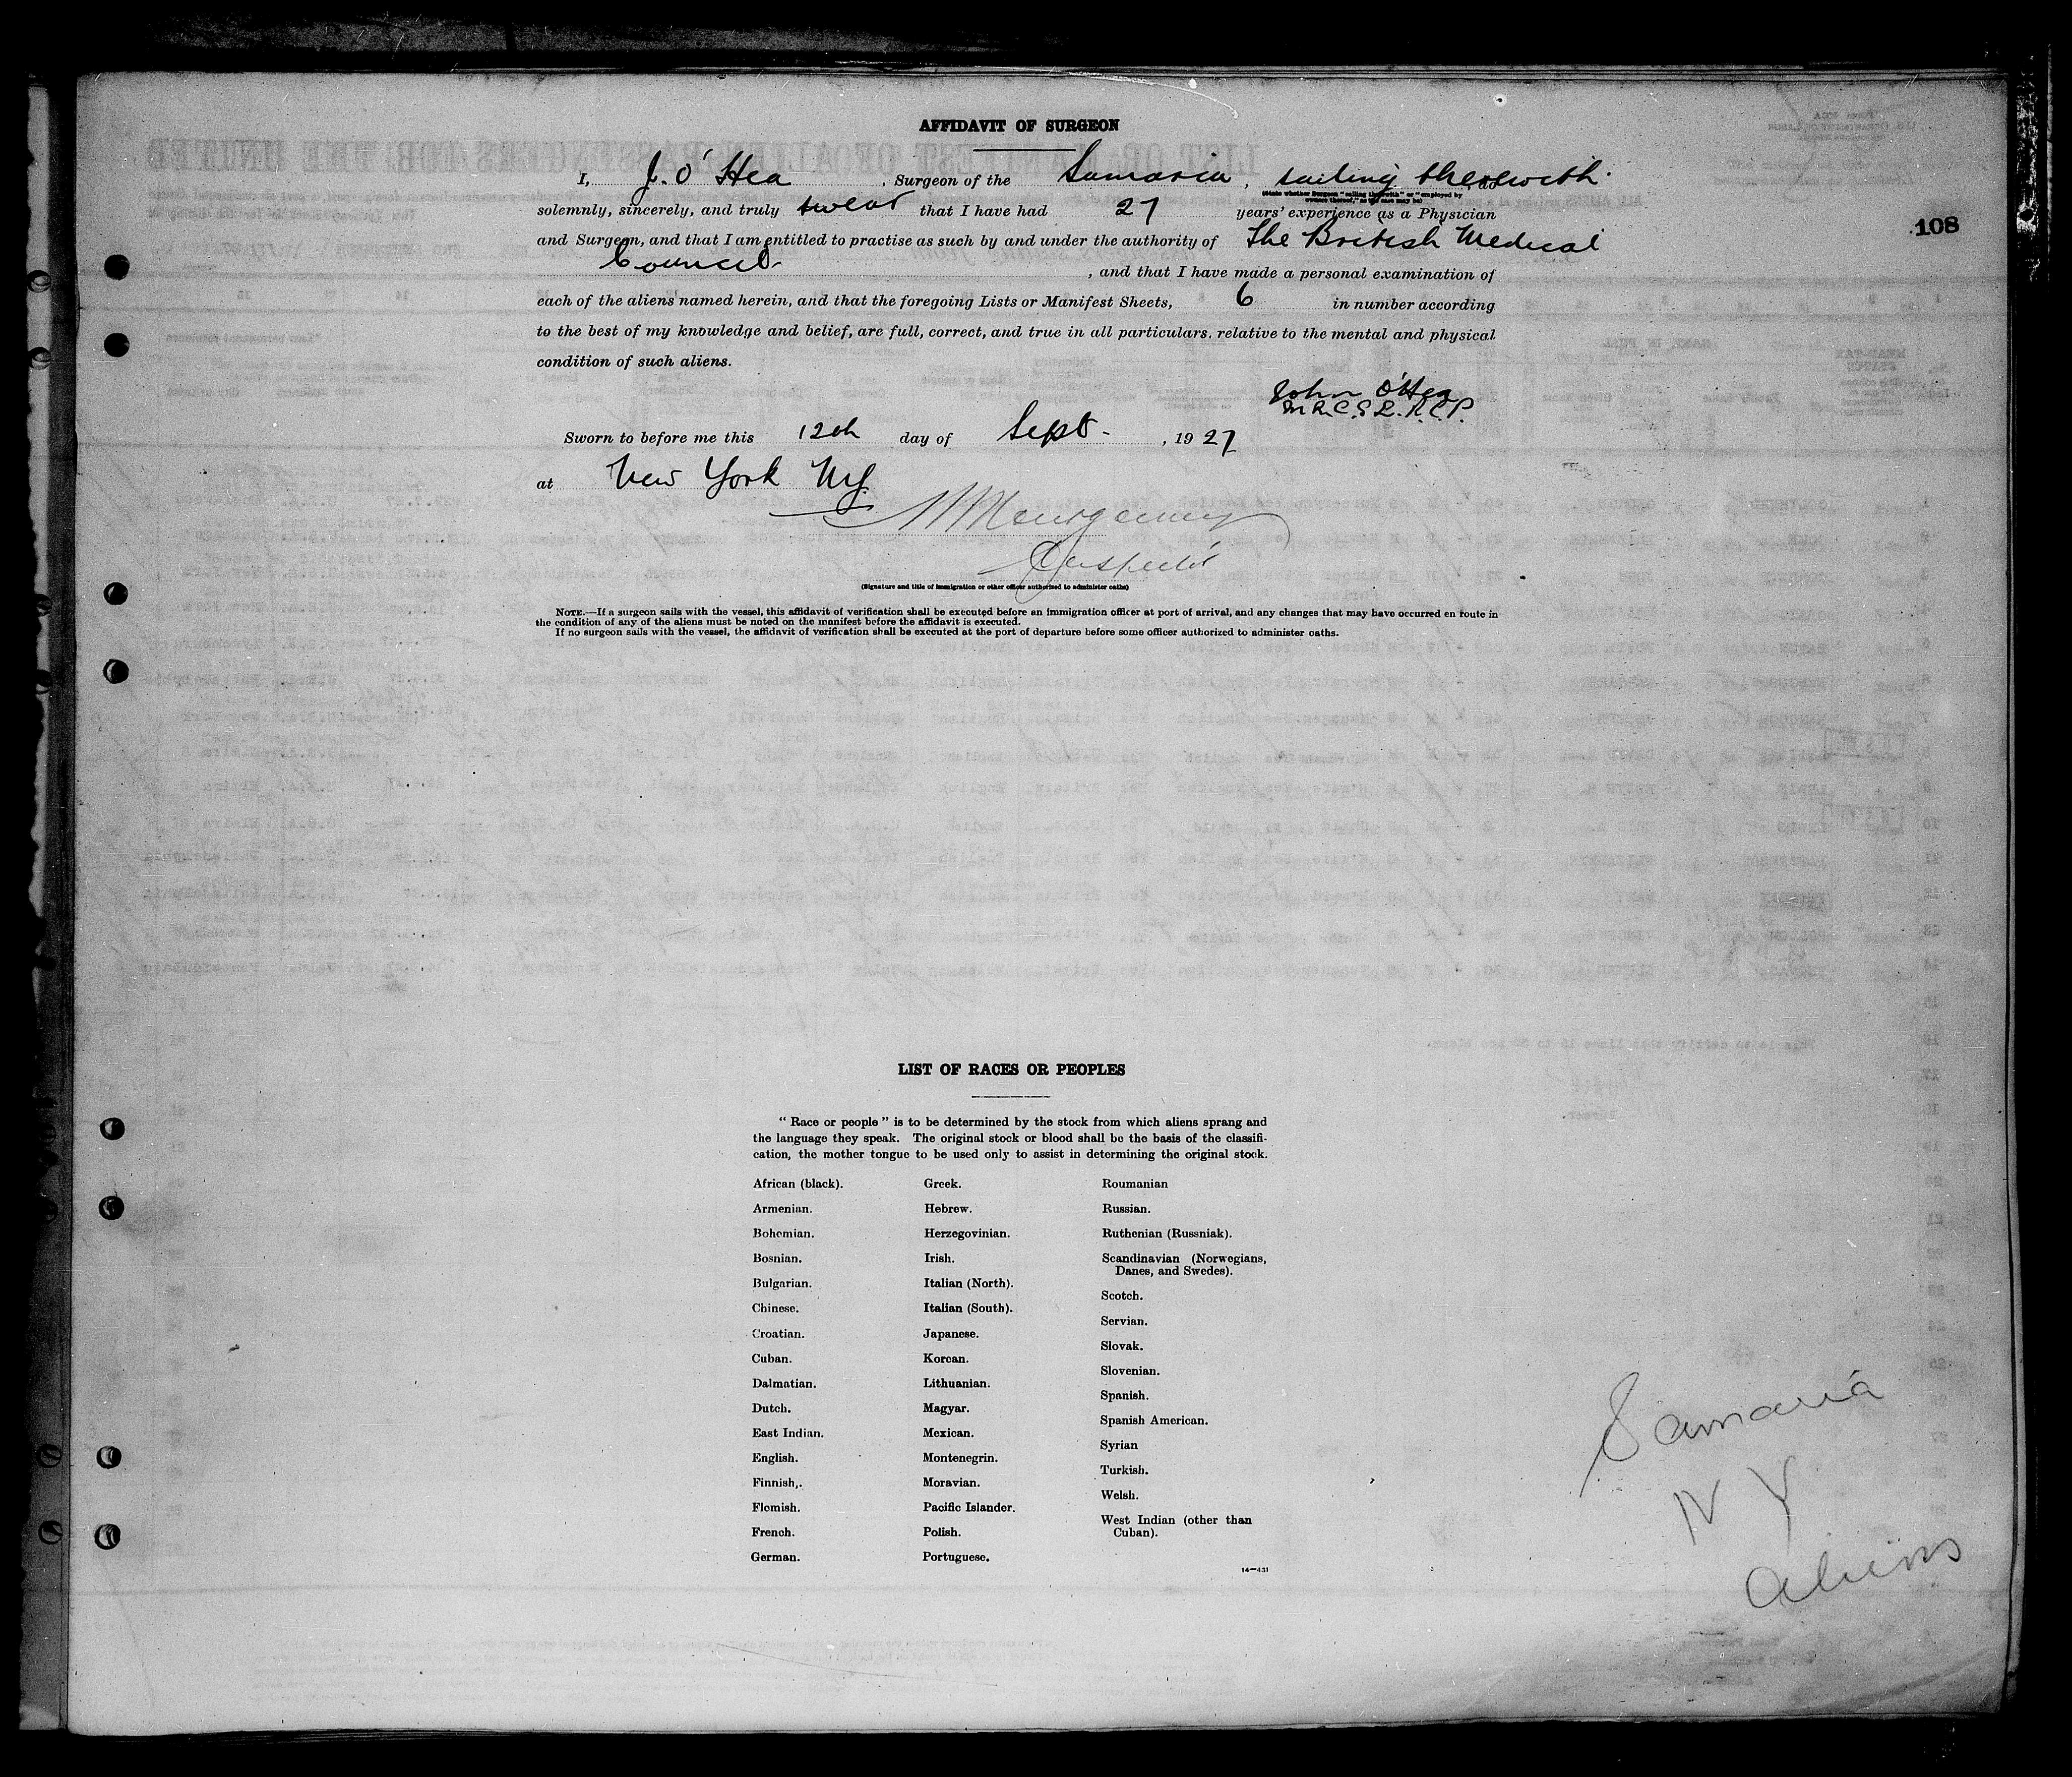 AFFIDAVIT OF SURGEON
I, J. O'Hea, Surgeon of the Samaria, sailing therewith, do
(State whether Surgeon "sailing therewith" or "employed by owners thereof," as the case may be)
solemnly, sincerely, and truly swear that I have had 27 years' experience as a Physician
108
and Surgeon, and that I am entitled to practise as such by and under the authority of The British Medical
Council, and that I have made a personal examination of
each of the aliens named herein, and that the foregoing Lists or Manifest Sheets, 6 in number according
to the best of my knowledge and belief, are full, correct, and true in all particulars, relative to the mental and physical
condition of such aliens.
John O'Hea
M.R.C.S L.R.C.P.
Sworn to before me this 12th day of Sept., 1927
at New York NY
Montgomery
(Signature and title of immigration or other officer authorized to administer oaths)
NOTE.—If a surgeon sails with the vessel, this affidavit of verification shall be executed before an immigration officer at port of arrival, and any changes that may have occurred en route in
the condition of any of the aliens must be noted on the manifest before the affidavit is executed.
If no surgeon sails with the vessel, the affidavit of verification shall be executed at the port of departure before some officer authorized to administer oaths.
LIST OF RACES OR PEOPLES
"Race or people" is to be determined by the stock from which aliens sprang and
the language they speak. The original stock or blood shall be the basis of the classifi-
cation, the mother tongue to be used only to assist in determining the original stock.
African (black).
Armenian.
Bohemian.
Bosnian.
Bulgarian.
Chinese.
Croatian.
Cuban.
Dalmatian.
Dutch.
East Indian.
English.
Finnish,.
Flemish.
French.
German.
Greek.
Hebrew.
Herzegovinian.
Irish.
Italian (North).
Italian (South).
Japanese.
Korean.
Lithuanian.
Magyar.
Mexican.
Montenegrin.
Moravian.
Pacific Islander.
Polish.
Portuguese.
Roumanian
Russian.
Ruthenian (Russniak).
Scandinavian (Norwegians,
Danes, and Swedes).
Scotch.
Servian.
Slovak.
Slovenian.
Spanish.
Spanish American.
Syrian
Turkish.
Welsh.
West Indian (other than
Cuban).
14—431
Samaria
N Y
Aliens